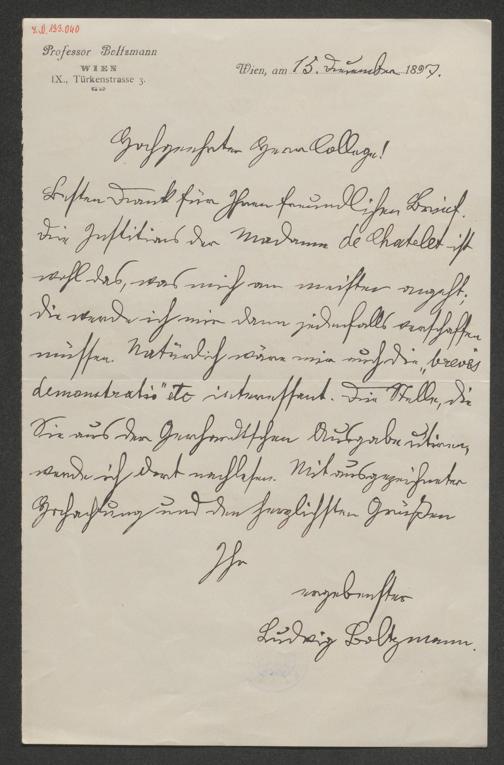 Professor Boltzmann
WIEN
IX., Türkenstrasse 3.
Wien, am 15. Dezember 1897.
Hochgeehrter Herr College!
Besten Dank für Ihren freundlichen Brief.
Die Institutions der Madame de Chatelet ist
wohl das, was mich am meisten angeht;
die werde ich mir dann jedenfalls verschaffen
müssen. Natürlich wäre mir auch die „brevis
demonstratio“ etc interessant. Die Stelle, die
Sie aus der Gerhardtschen Ausgabe citiren,
werde ich dort nachlesen. Mit ausgezeichneter
Hochachtung und den herzlichsten Grüßen
Ihr
ergebenster
Ludwig Boltzmann.